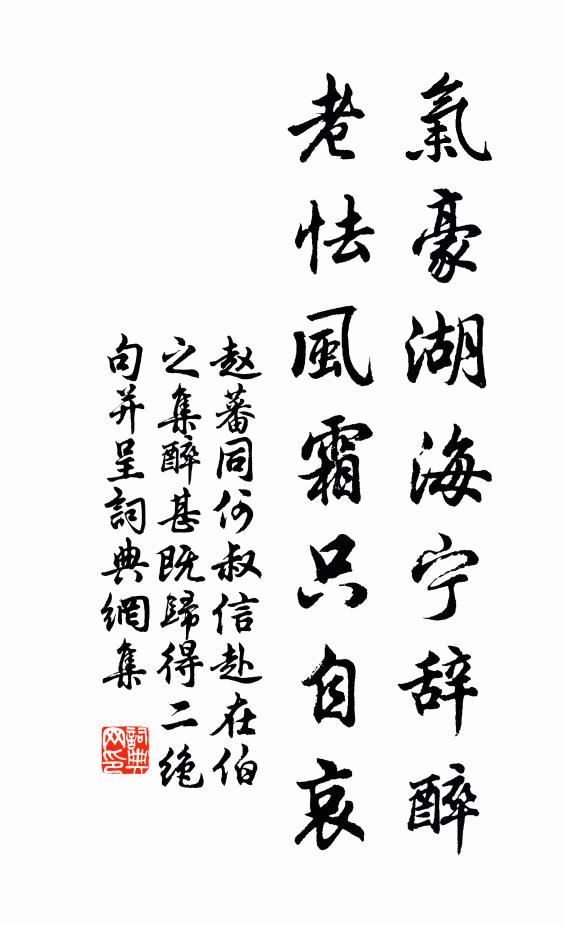 氣豪湖海宁辞醉
老怯風霜只自哀
赵蕃同何叔信赴在伯
之集醉甚既歸得二绝
句并呈詞典網集
詞典网印